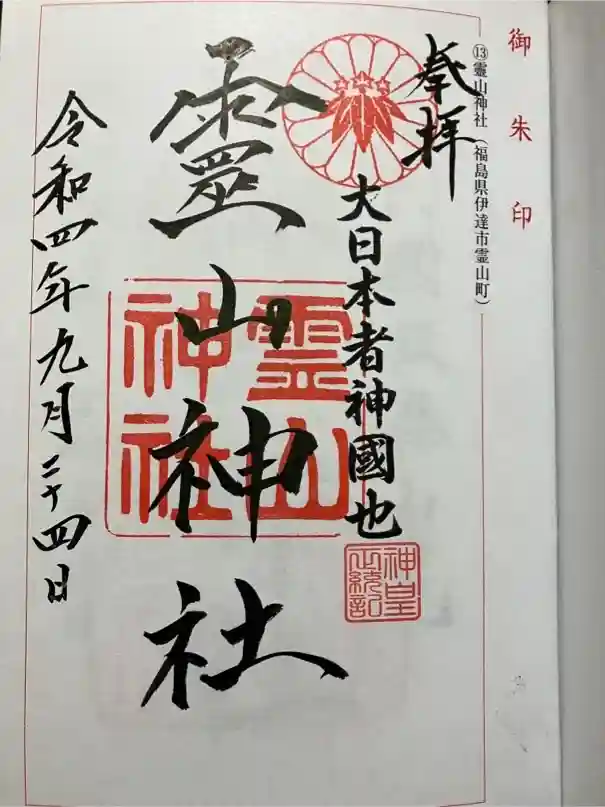 御朱印
⑬霊山神社（福島県伊達市霊山町）
奉拝
大日本者神國也
神皇正統記
靈山神社
霊山神社
令和四年九月二十四日